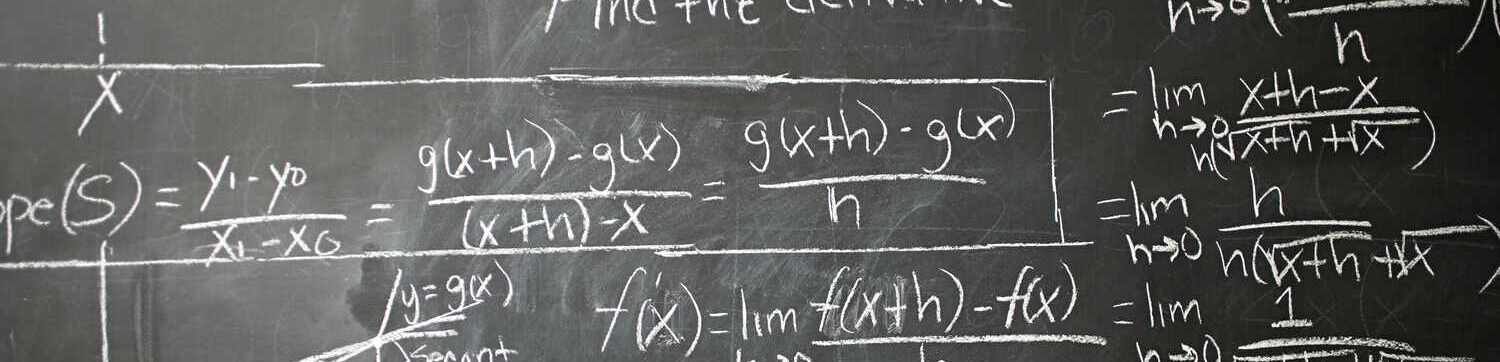 Find the derivative
x
ope(S) = y₁-y₀/x₁-x₀ = g(x+h)-g(x)/(x+h)-x = g(x+h)-g(x)/h
y=g(x)
secant
f'(x)=lim f(x+h)-f(x)
h→0( /h )(
=lim h→0 x+h-x/h(√x+h+√x)
=lim h→0 h/h(√x+h+√x)
=lim h→0 1